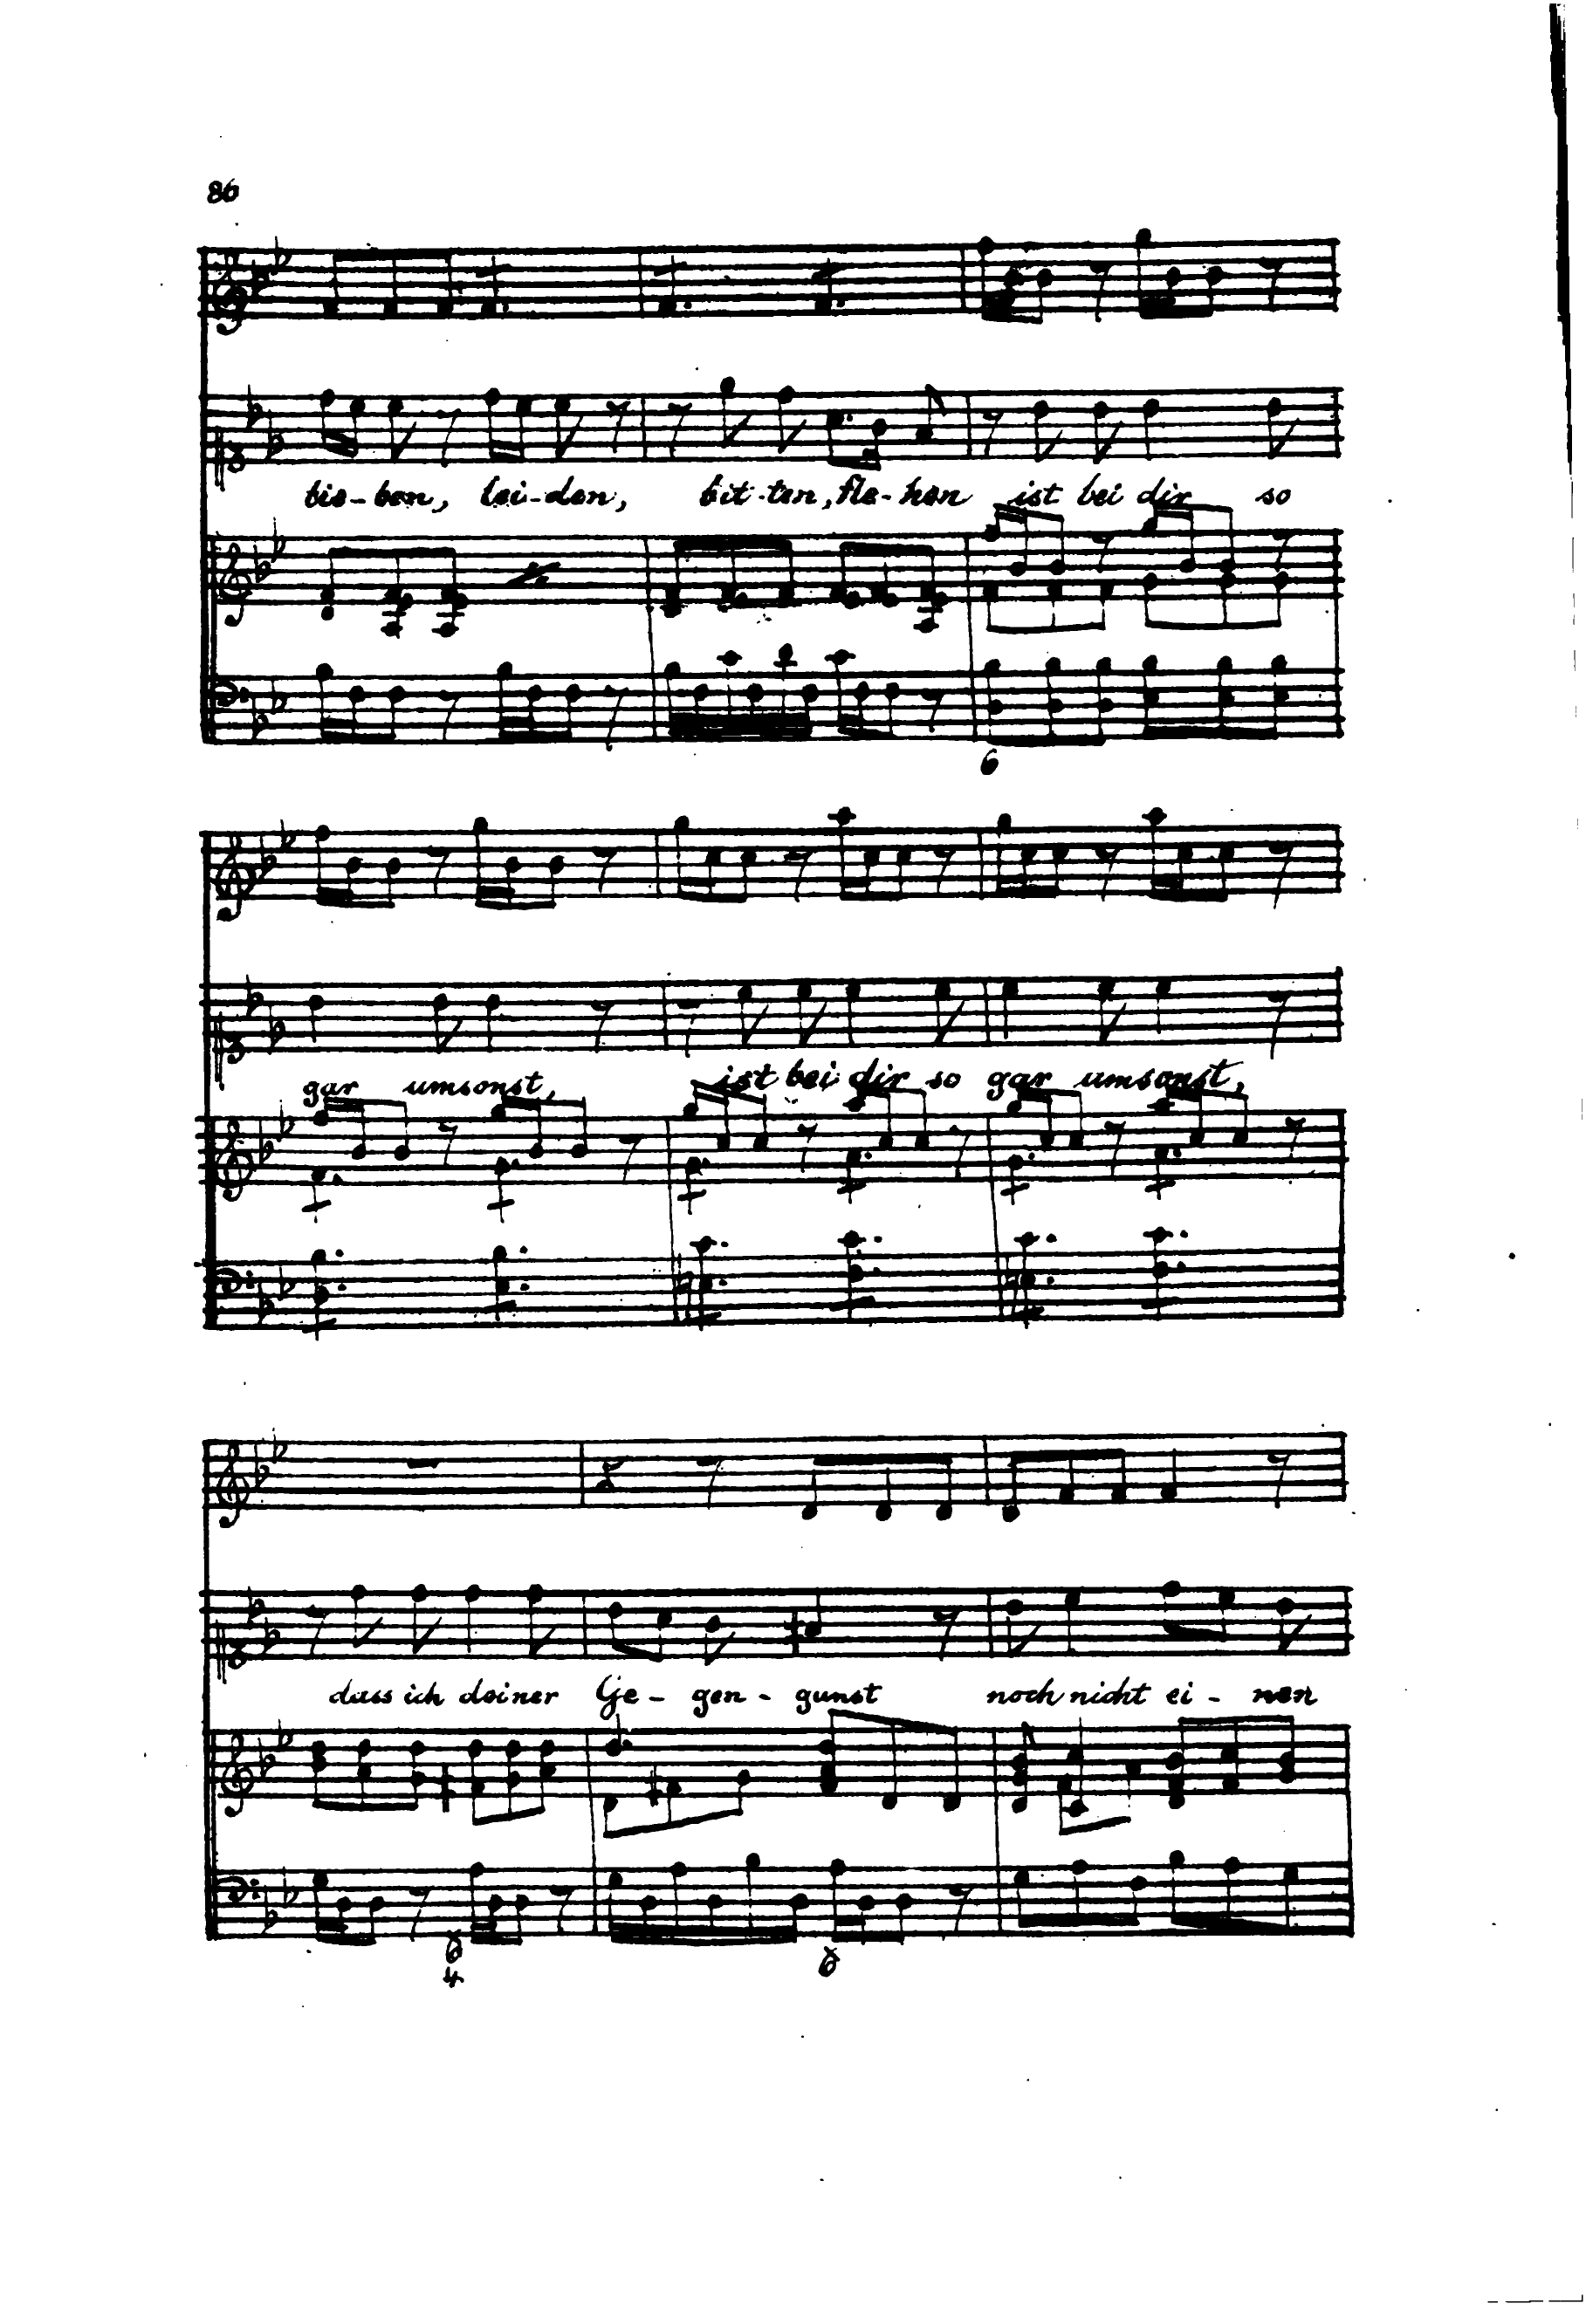 86
lie-ben, lei-den, bit-ten, fle-hen ist bei dir so
6
gar umsonst, ist bei dir so gar umsonst,
dass ich deiner Ge-gen-gunst noch nicht ei-nen
6 6
4